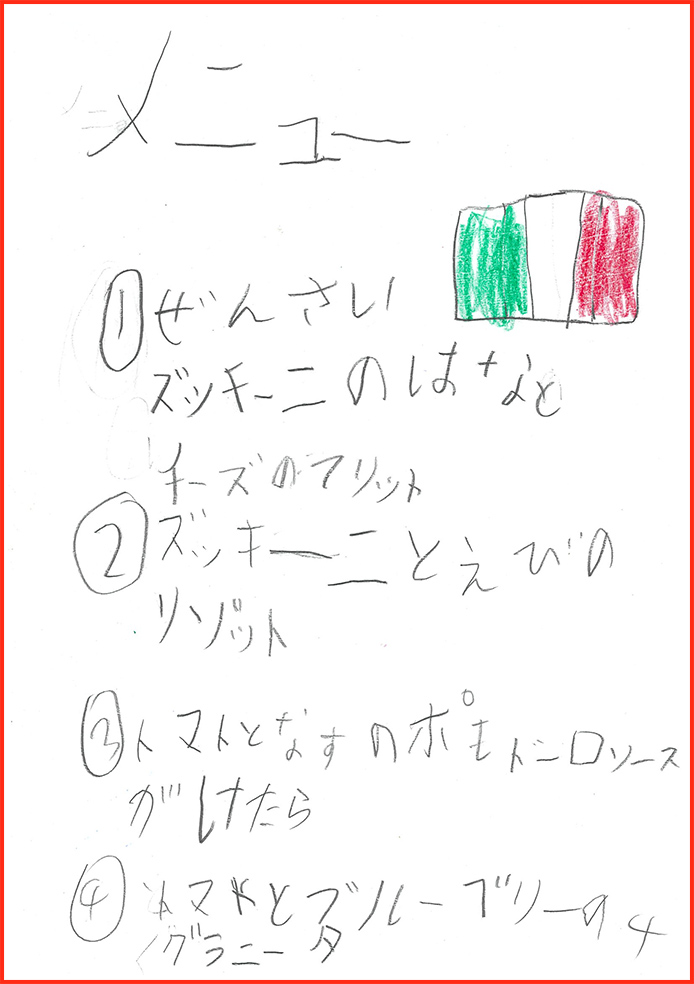 メニュー
①ぜんさい
ズッキーニのはなと
チーズのフリット
②ズッキーニとえびの
リゾット
③トマトとなすのポモドーロソース
がけたら
④トマトとブルーブリーの4
グラニータ